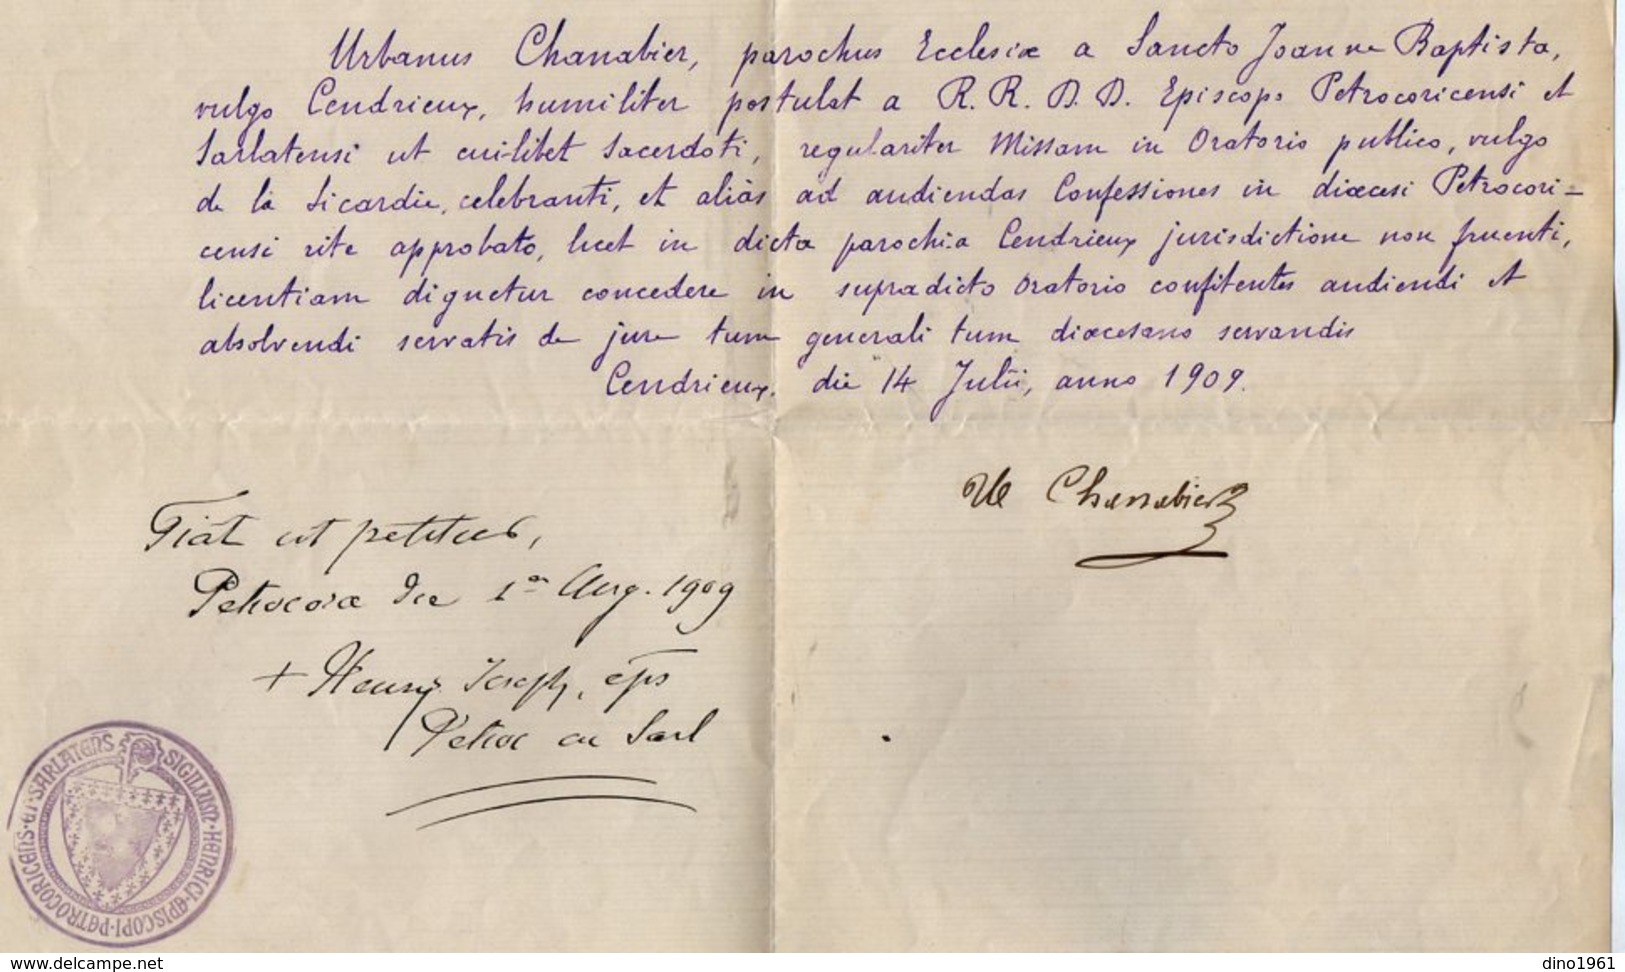 Urbanus Chanabier, parochus Ecclesiæ a Sancto Joanne Baptista,
vulgo Cendrieux, humiliter postulat a R. R. D. D. Episcopo Petrocoricensi et
Sarlatensi ut cui-libet Sacerdoti, regulariter Missam in Oratorio publico, vulgo
de la Sicardie, celebranti, et aliàs ad audiendas Confessiones in diœcesi Petrocori-
censi rite approbato, licet in dicta parochia Cendrieux jurisdictione non fruenti,
licentiam dignetur concedere in supradicto Oratorio confitentes audiendi et
absolvendi servatis de jure tum generali tum diœcesano servandis
Cendrieux, die 14 Julii, anno 1909.
U Chanabier
Fiat ut petitur,
Petrocoræ die 1a Aug. 1909
+ Henry Joseph, eps
Petroc au Sarl
SIGILLUM · HENRICI · EPISCOPI · PETROCORICENS · ET · SARLATENS
www.delcampe.net
dino1961